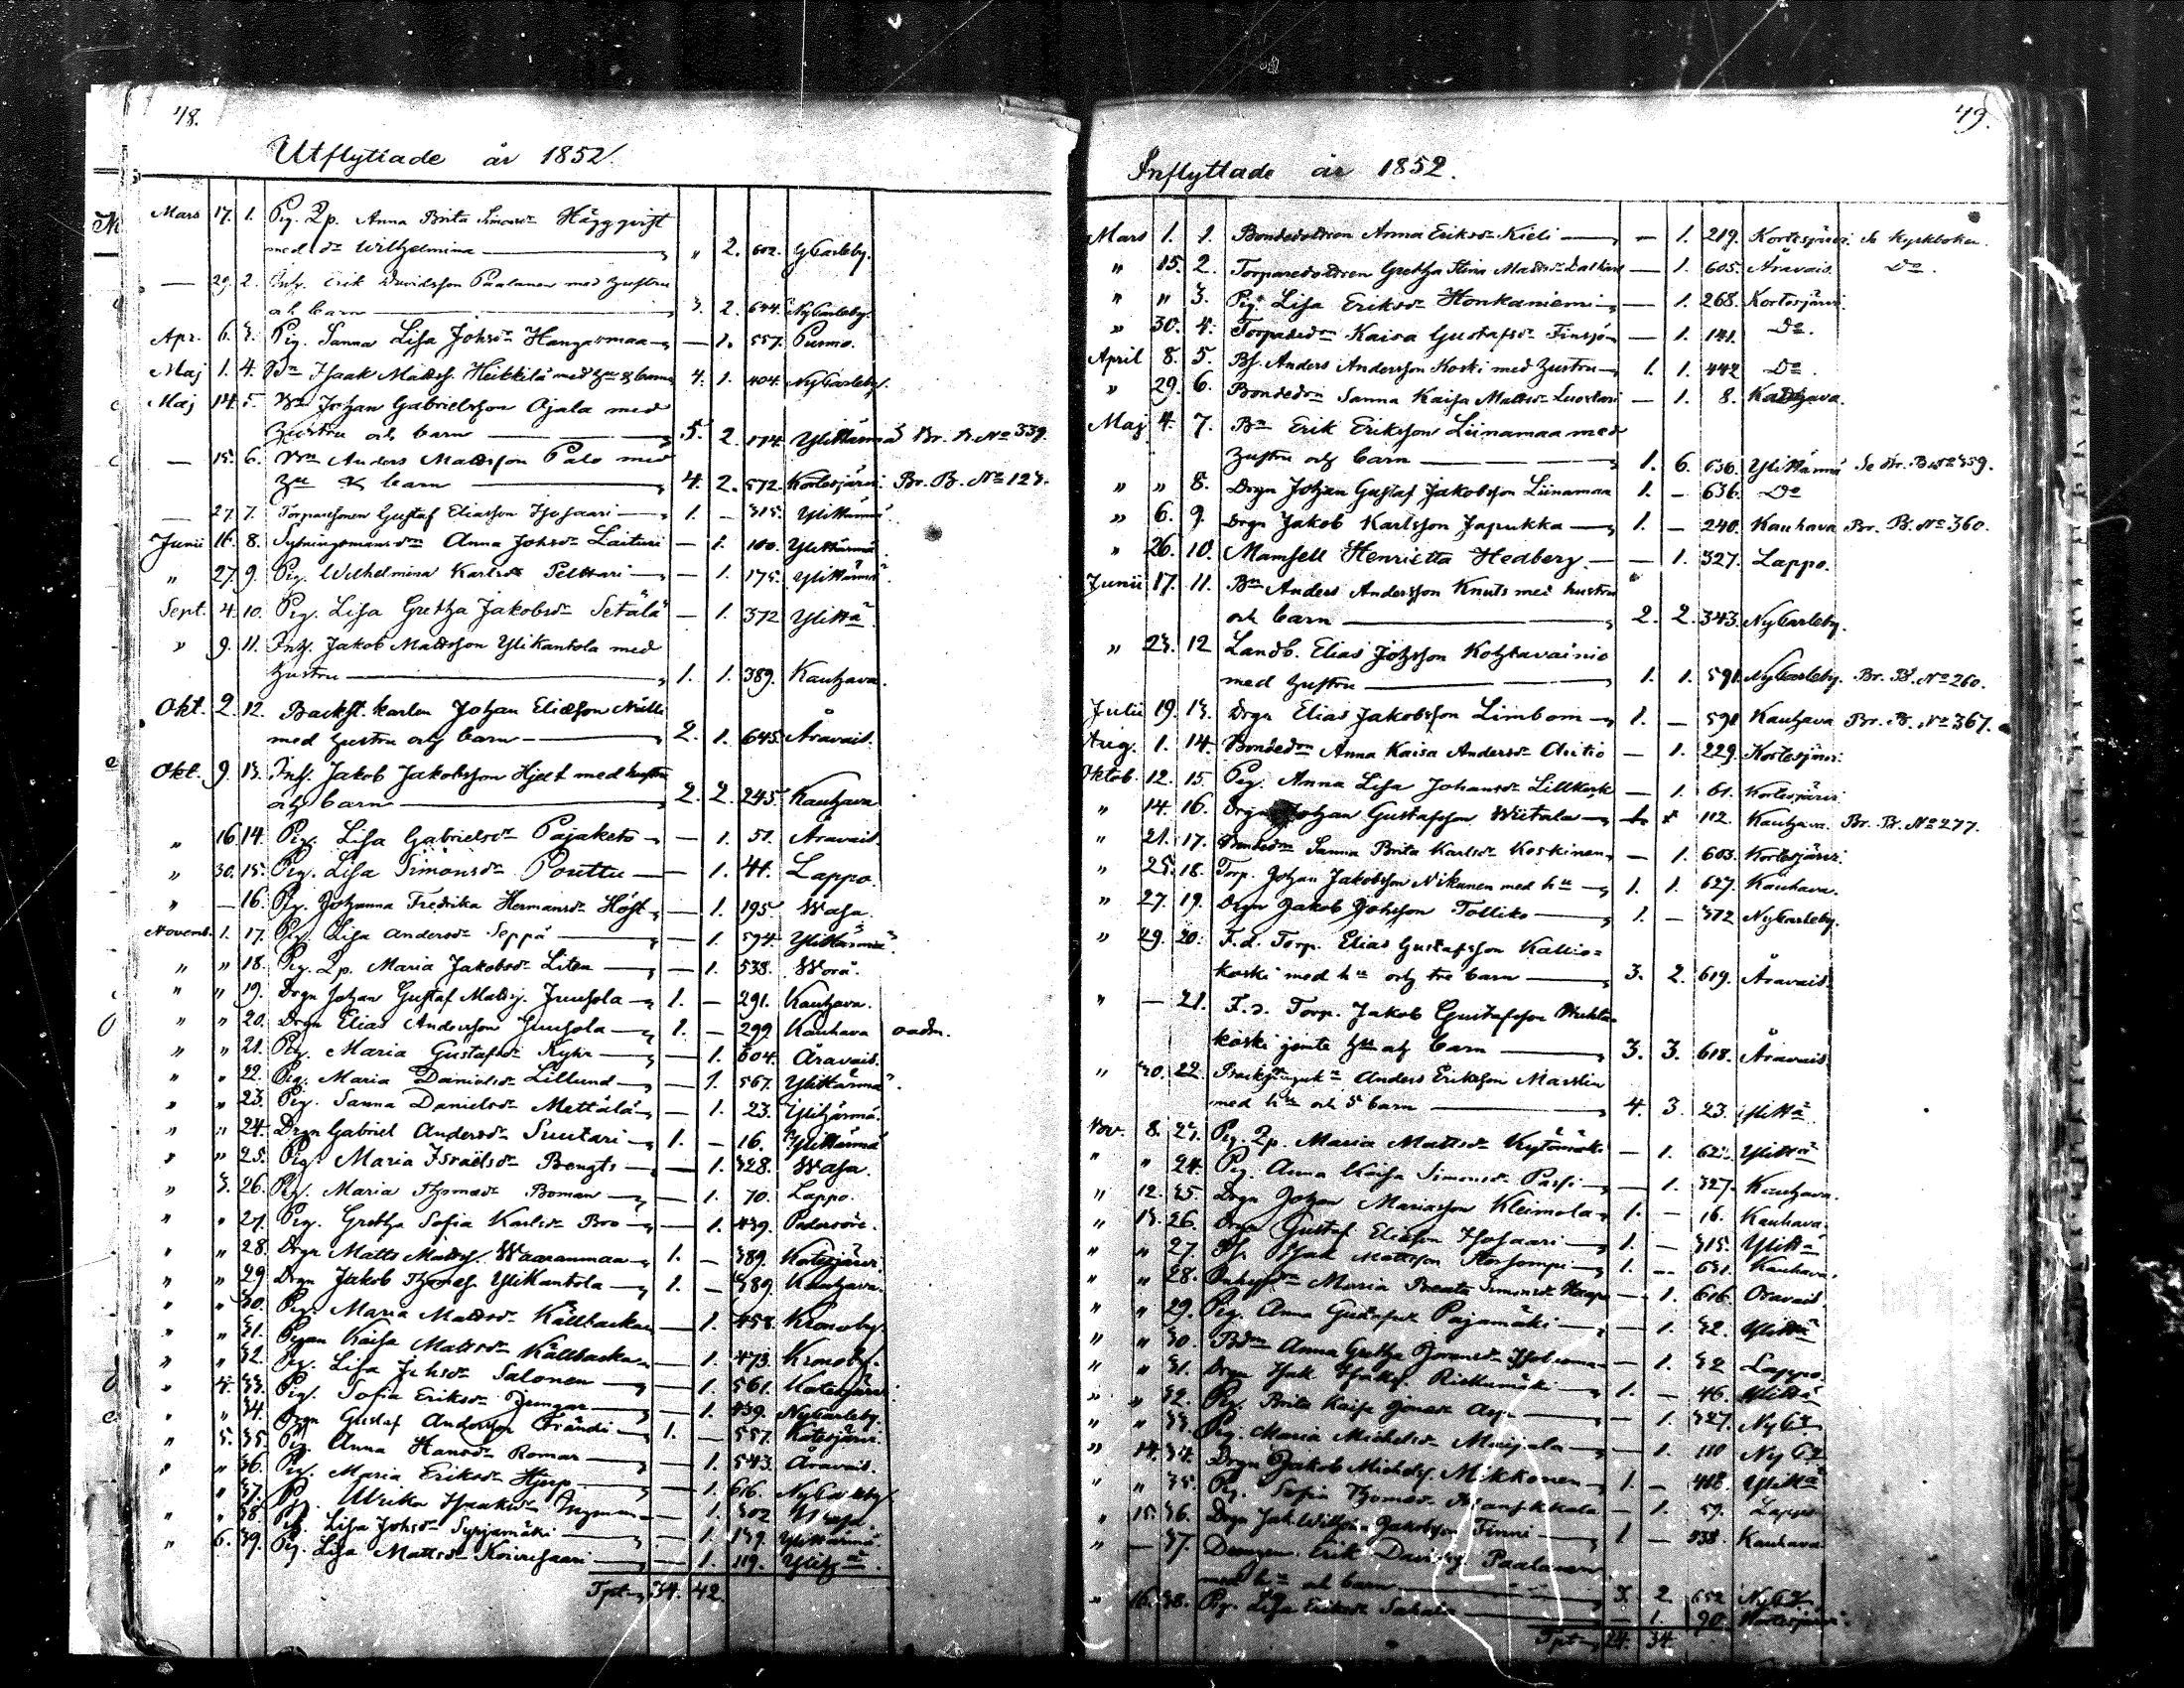 48.
Utflyttade år 1852.
Mars 17. 1. Pig. Qp. Anna Brita Simonsdr Häggqvist
med dr Wilhelmina — " 2. 602. GCarleby.
— 29. 2. Inh. Erik Davidsson Paalanen med hustru
och barn — 3. 2. 654. NyCarleby.
Apr. 6. 3. Pig. Sanna Lisa Johsdr Hangasmaa — 1. 557. Purmo.
Maj 1. 4. Bn Isaak Mattss. Heikkilä med hu & barn 4. 1. 404. NyCarleby.
Maj 14. 5. Bn Johan Gabrielsson Ojala med
hustru och barn — 5. 2. 174. Ylihärmä Br. B. No 339.
— 15. 6. Bn Anders Mattsson Palo med
hu & barn — 4. 2. 572. Kortesjärvi. Br. B. No 123.
— 27. 7. Torparesonen Gustaf Eliasson Isosaari — 1. — 315. Ylihärmä.
Junii 16. 8. Sytningsmansdrn Anna Johsdr Laituri — 1. 100. Ylihärmä.
" 27. 9. Pig. Wilhelmina Karlsdr Pelttari — 1. 175. Ylihärmä.
Sept. 4. 10. Pig. Lisa Gretha Jakobsdr Setälä — 1. 372 Ylihä.
" 9. 11. Inh. Jakob Mattsson Ylikantola med
hustru — 1. 1. 389. Kauhava.
Okt. 2. 12. Backst. karlen Johan Eliasson Nälli
med hustru och barn — 2. 1. 645. Åravais.
Okt. 9. 13. Inh. Jakob Jakobsson Hjelt med hustru
och barn — 2. 2. 245. Kauhava
" 16. 14. Pig. Lisa Gabrielsdr Pajaketo — 1. 51. Åravais.
" 30. 15. Pig. Lisa Simonsdr Pouttu — 1. 41. Lappo.
" — 16. Pig. Johanna Fredrika Hermansdr Höst — 1. 195. Wasa.
Novemb. 1. 17. Pig. Lisa Andersdr Seppä — 1. 594. Ylihärmä.
" " 18. Pig. Qp. Maria Jakobsdr Liten — 1. 538. Wörå.
" " 19. Drgn Johan Gustaf Mattss. Juusola 1. — 291. Kauhava.
" " 20. Drgn Elias Andersson Juusola — 1. — 299. Kauhava oadm.
" " 21. Pig. Maria Gustafsdr Kyhn — 1. 604. Åravais.
" " 22. Pig. Maria Danielsdr Lillund — 1. 567. Ylihärmä.
" " 23. Pig. Sanna Danielsdr Mettälä — 1. 23. Ylihärmä.
" " 24. Drgn Gabriel Andersdr Suutari — 1. — 16. Ylihärmä
" " 25. Pig. Maria Israelsdr Bengts — 1. 328. Wasa.
" 3. 26. Pig. Maria Thomasdr Boman — 1. 70. Lappo.
" " 27. Pig. Gretha Sofia Karlsdr Bro — 1. 439. Pedersöre.
" " 28. Drgn Matts Mattss. Waaranmaa 1. — 389. Kortesjärvi.
" " 29. Drgn Jakob Thomass. Ylikantola — 1. — 389. Kauhava.
" " 30. Pig. Maria Mattsdr Källbacka — 1. 458. Kronoby.
" " 31. Pigan Kaisa Mattsdr Källbacka — 1. 473. Kronoby.
" " 32. Pig. Lisa Johsdr Salonen — 1. 561. Kortesjärvi.
" 4. 33. Pig. Sofia Eriksdr Jungar — 1. 439. NyCarleby.
" " 34. Drgn Gustaf Andersson Frändi — 1. — 557. Kortesjärvi.
" 5. 35. Pig. Anna Hansdr Romar — 1. 543. Åravais.
" " 36. Pig. Maria Eriksdr — 1. 616. NyCarleby
" 37. Ulrika Isaaksdr Ingman — 1. 302
" " 38. Pig. Lisa Johsdr Syrjämäki — 1. 139. Ylihärmä.
" 6. 39. Pig. Lisa Mattsdr Koivusaari — 1. 119. Ylihä.
Tpt 34. 42.
49.
Inflyttade år 1852.
Mars 1. 1. Bondedottren Anna Eriksdr Kieli — 1. 219. Kortesjärvi. Se Kyrkboken.
" 15. 2. Torparedottren Gretha Stina Mattsdr — 1. 605. Åravais. Do.
" " 3. Pig. Lisa Eriksdr Honkaniemi — 1. 268. Kortesjärvi
" 30. 4. Torparedrn Kaisa Gustafsdr Finsjön — 1. 141. Do.
April 8. 5. Bs. Anders Andersson Koski med hustru 1. 1. 442 Do.
" 29. 6. Bondedrn Sanna Kaisa Mattsdr Luostari — 1. 8. Kauhava.
Maj 4. 7. Bn Erik Eriksson Liinamaa med
hustru och barn — 1. 6. 636. Ylihärmä Se Br. B. No 359.
" " 8. Drgn Johan Gustaf Jakobsson Liinamaa 1. — 636. Do
" 6. 9. Drgn Jakob Karlsson Japukka — 1. — 240. Kauhava Br. B. No 360.
" 26. 10. Mamsell Henrietta Hedberg. — 1. 327. Lappo.
Junii 17. 11. Bn Anders Andersson Knuts med hustru
och barn — 2. 2. 343. NyCarleby.
" 23. 12 Landb. Elias Johsson Kohtavainio
med hustru — 1. 1. 591. NyCarleby. Br. B. No 260.
Julii 19. 13. Drgn Elias Jakobsson Limbom — 1. — 591 Kauhava Br. B. No 367.
Aug. 1. 14. Bondedrn Anna Kaisa Andersdr Autio — 1. 229. Kortesjärvi.
Oktob. 12. 15. Pig. Anna Lisa Johansdr Lillkask — 1. 61. Kortesjärvi
" 14. 16. Drgn Johan Gustafsson Wiitala — 112. Kauhava. Br. B. No 277.
" 21. 17. Bondedrn Sanna Brita Karlsdr Koskinen — 1. 603. Kortesjärvi.
" 25. 18. Torp. Johan Jakobsson Nikanen med hu 1. 1. 627. Kauhava.
" 27. 19. Drgn Jakob Johsson Tolliko — 1. — 372 NyCarleby.
" 29. 20. F.d. Torp. Elias Gustafsson Kallio=
koski med hu och tre barn — 3. 2. 619. Åravais
" — 21. F.d. Torp. Jakob Gustafsson
koski jemte hu och barn — 3. 3. 618. Åravais
" 30. 22. Anders Eriksson Marttin
med hu och 5 barn — 4. 3. 23. Ylihä
Nov. 8. 23. Pig. Qp. Maria Mattsdr Kytömäki — 1. Ylihä
" " 24. Pig. Anna Kaisa Simonsdr Passi — 1. 327. Kauhava.
" 12. 25. Drgn Johan Mariasson Kleimola 1. — 16. Kauhava.
" 13. 26. Drgn Gustaf Eliasson Isosaari — 1. — 315. Ylihä
" " 27. Isak Mattsson — 1. — 631. Kauhava.
" " 28. Maria Beata Simonsdr Haapa — 1. 616. Oravais.
" " 29. Pig. Anna Gustafsdr Pajamäki — 1. 32. Ylihä
" " 30. Bdrn Anna Gretha — 1. 32 Lappo.
" " 31. Drgn Isak Isakss. Riskumäki — 1. — 46. Ylihä
" " 32. Pig. Brita Kaisa — 1. 327. Ny C.
" " 33. Pig. Maria Michelsdr Maijala — 1. 110 Ny C.
" 14. 34. Drgn Jakob Michelss. Mikkonen — 1. — 418. Ylihä
" " 35. Pig. Sofia Thomsdr — 1. 59. Lappo
" 15. 36. Drgn Joh. Wilhelm Jakobsson Finni — 1 — 538. Kauhava
" — 37. Drengen Erik Davidss. Paalanen
med hu och barn — 3. 2. 652 Ny C.
" 16. 38. Pig. Lisa Eriksdr — 1. 90. Kortesjärvi.
Tpt 24. 34.